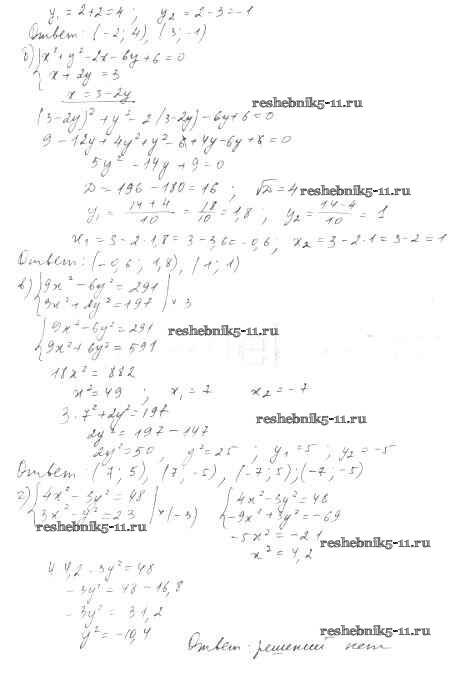 y₁ = 2+2=4 ; y₂ = 2-3=-1
Ответ: (-2; 4), (3; -1)
б) { x² + y² - 2x - 6y + 6 = 0
x + 2y = 3
x = 3-2y
reshebnik5-11.ru
(3-2y)² + y² - 2(3-2y) - 6y + 6 = 0
9 - 12y + 4y² + y² - 6 + 4y - 6y + 6 = 0
5y² - 14y + 9 = 0
D = 196 - 180 = 16 ; √D = 4
reshebnik5-11.ru
y₁ = (14+4)/10 = 18/10 = 1,8 ; y₂ = (14-4)/10 = 1
x₁ = 3 - 2·1,8 = 3 - 3,6 = -0,6 ; x₂ = 3 - 2·1 = 3-2 = 1
Ответ: (-0,6; 1,8), (1; 1)
в) { 9x² - 6y² = 291
3x² + 2y² = 197 | × 3
{ 9x² - 6y² = 291
9x² + 6y² = 591
reshebnik5-11.ru
18x² = 882
x² = 49 ; x₁ = 7 x₂ = -7
3·7² + 2y² = 197
reshebnik5-11.ru
2y² = 197 - 147
2y² = 50, y² = 25 ; y₁ = 5 ; y₂ = -5
Ответ (7; 5), (7; -5), (-7; 5); (-7; -5)
г) { 4x² - 3y² = 48
3x² - y² = 23 | × (-3)
reshebnik5-11.ru
{ 4x² - 3y² = 48
-9x² + 3y² = -69
-5x² = -21
reshebnik5-11.ru
x² = 4,2
4·4,2 - 3y² = 48
-3y² = 48 - 16,8
-3y² = 31,2
y² = -10,4
reshebnik5-11.ru
Ответ: решений нет